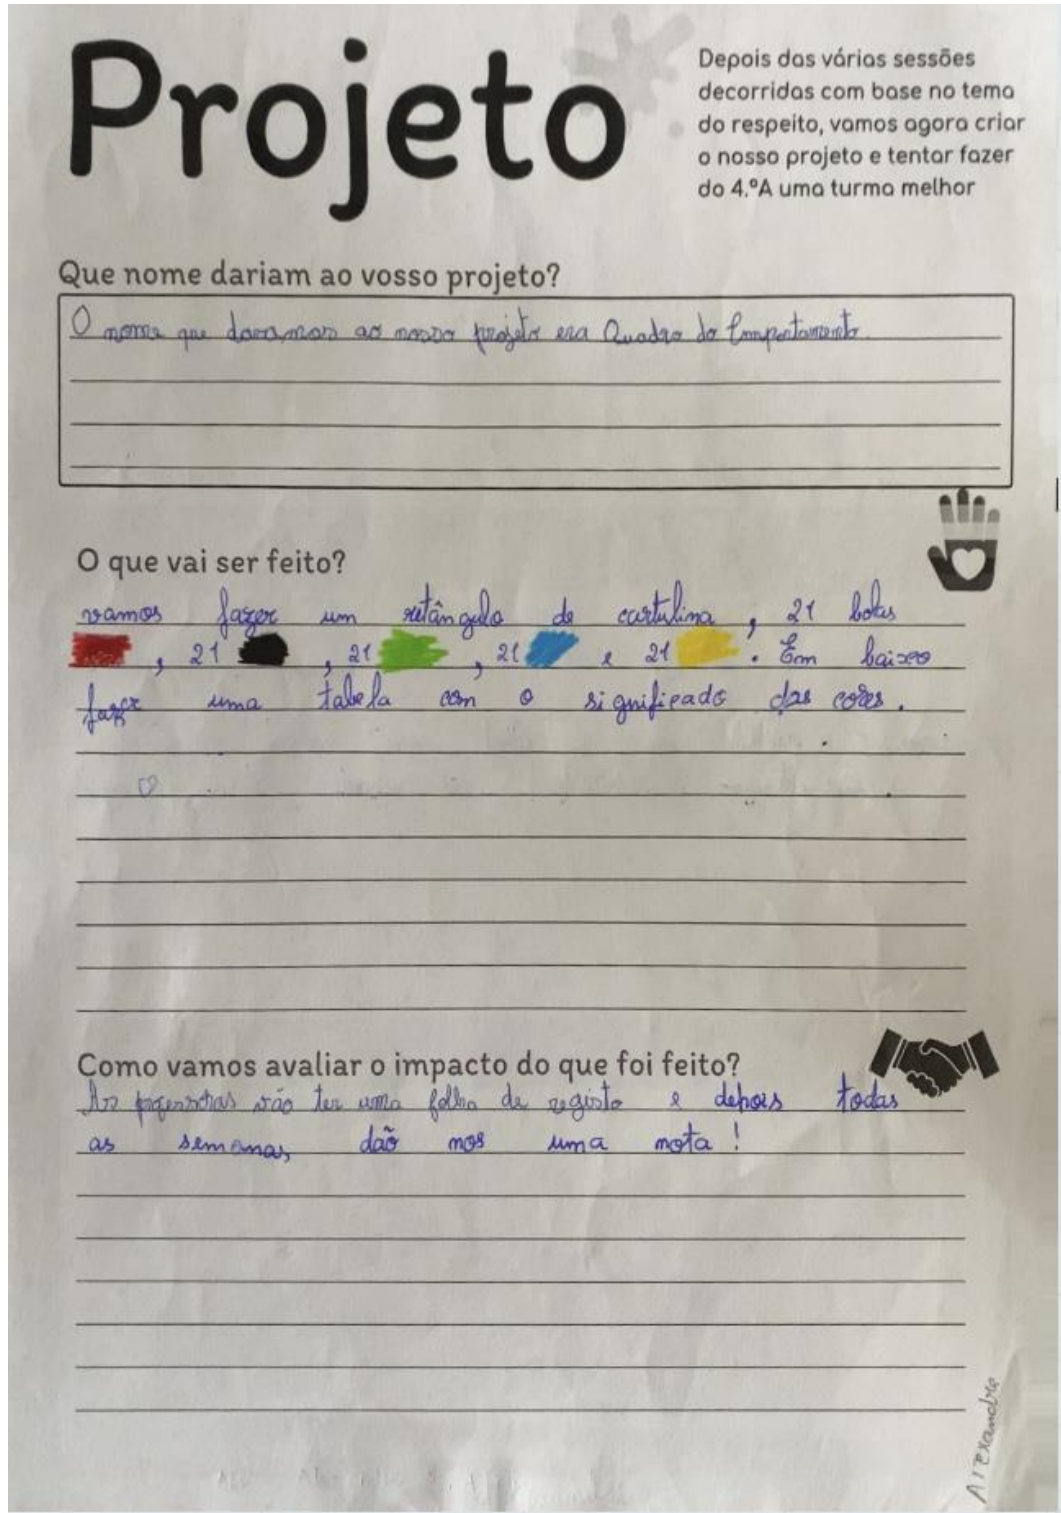 Projeto
Depois das várias sessões
decorridas com base no tema
do respeito, vamos agora criar
o nosso projeto e tentar fazer
do 4.ºA uma turma melhor
Que nome dariam ao vosso projeto?
O nome que davamos ao nosso projeto era Quadro do Comportamento.
O que vai ser feito?
vamos fazer um retângulo de cartulina, 21 bolas
, 21 , 21 , 21 e 21 . Em baixo
fazer uma tabela com o significado das cores.
Como vamos avaliar o impacto do que foi feito?
As professoras vão ter uma folha de registo e depois todas
as semanas, daõ nos uma nota!
Alexandre